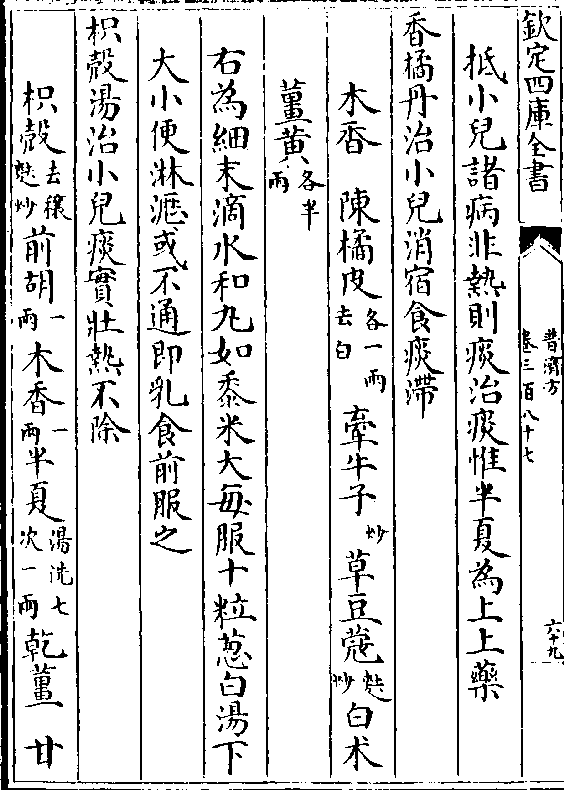 欽定四庫全書
普濟方
卷三百八十七
六十九
抵小兒諸病非熱則痰治痰惟半夏為上上藥
香橘丹治小兒消宿食痰滯
木香 陳橘皮各一兩去白 牽牛子炒 草豆蔻麩炒 白术
薑黃各半兩
右為細末滴水和丸如黍米大每服十粒葱白湯下
大小便淋澁或不通即乳食前服之
枳殼湯治小兒痰實壯熱不除
枳殼去穰麩炒 前胡一兩 木香一兩 半夏湯洗七次一兩 乾薑 甘